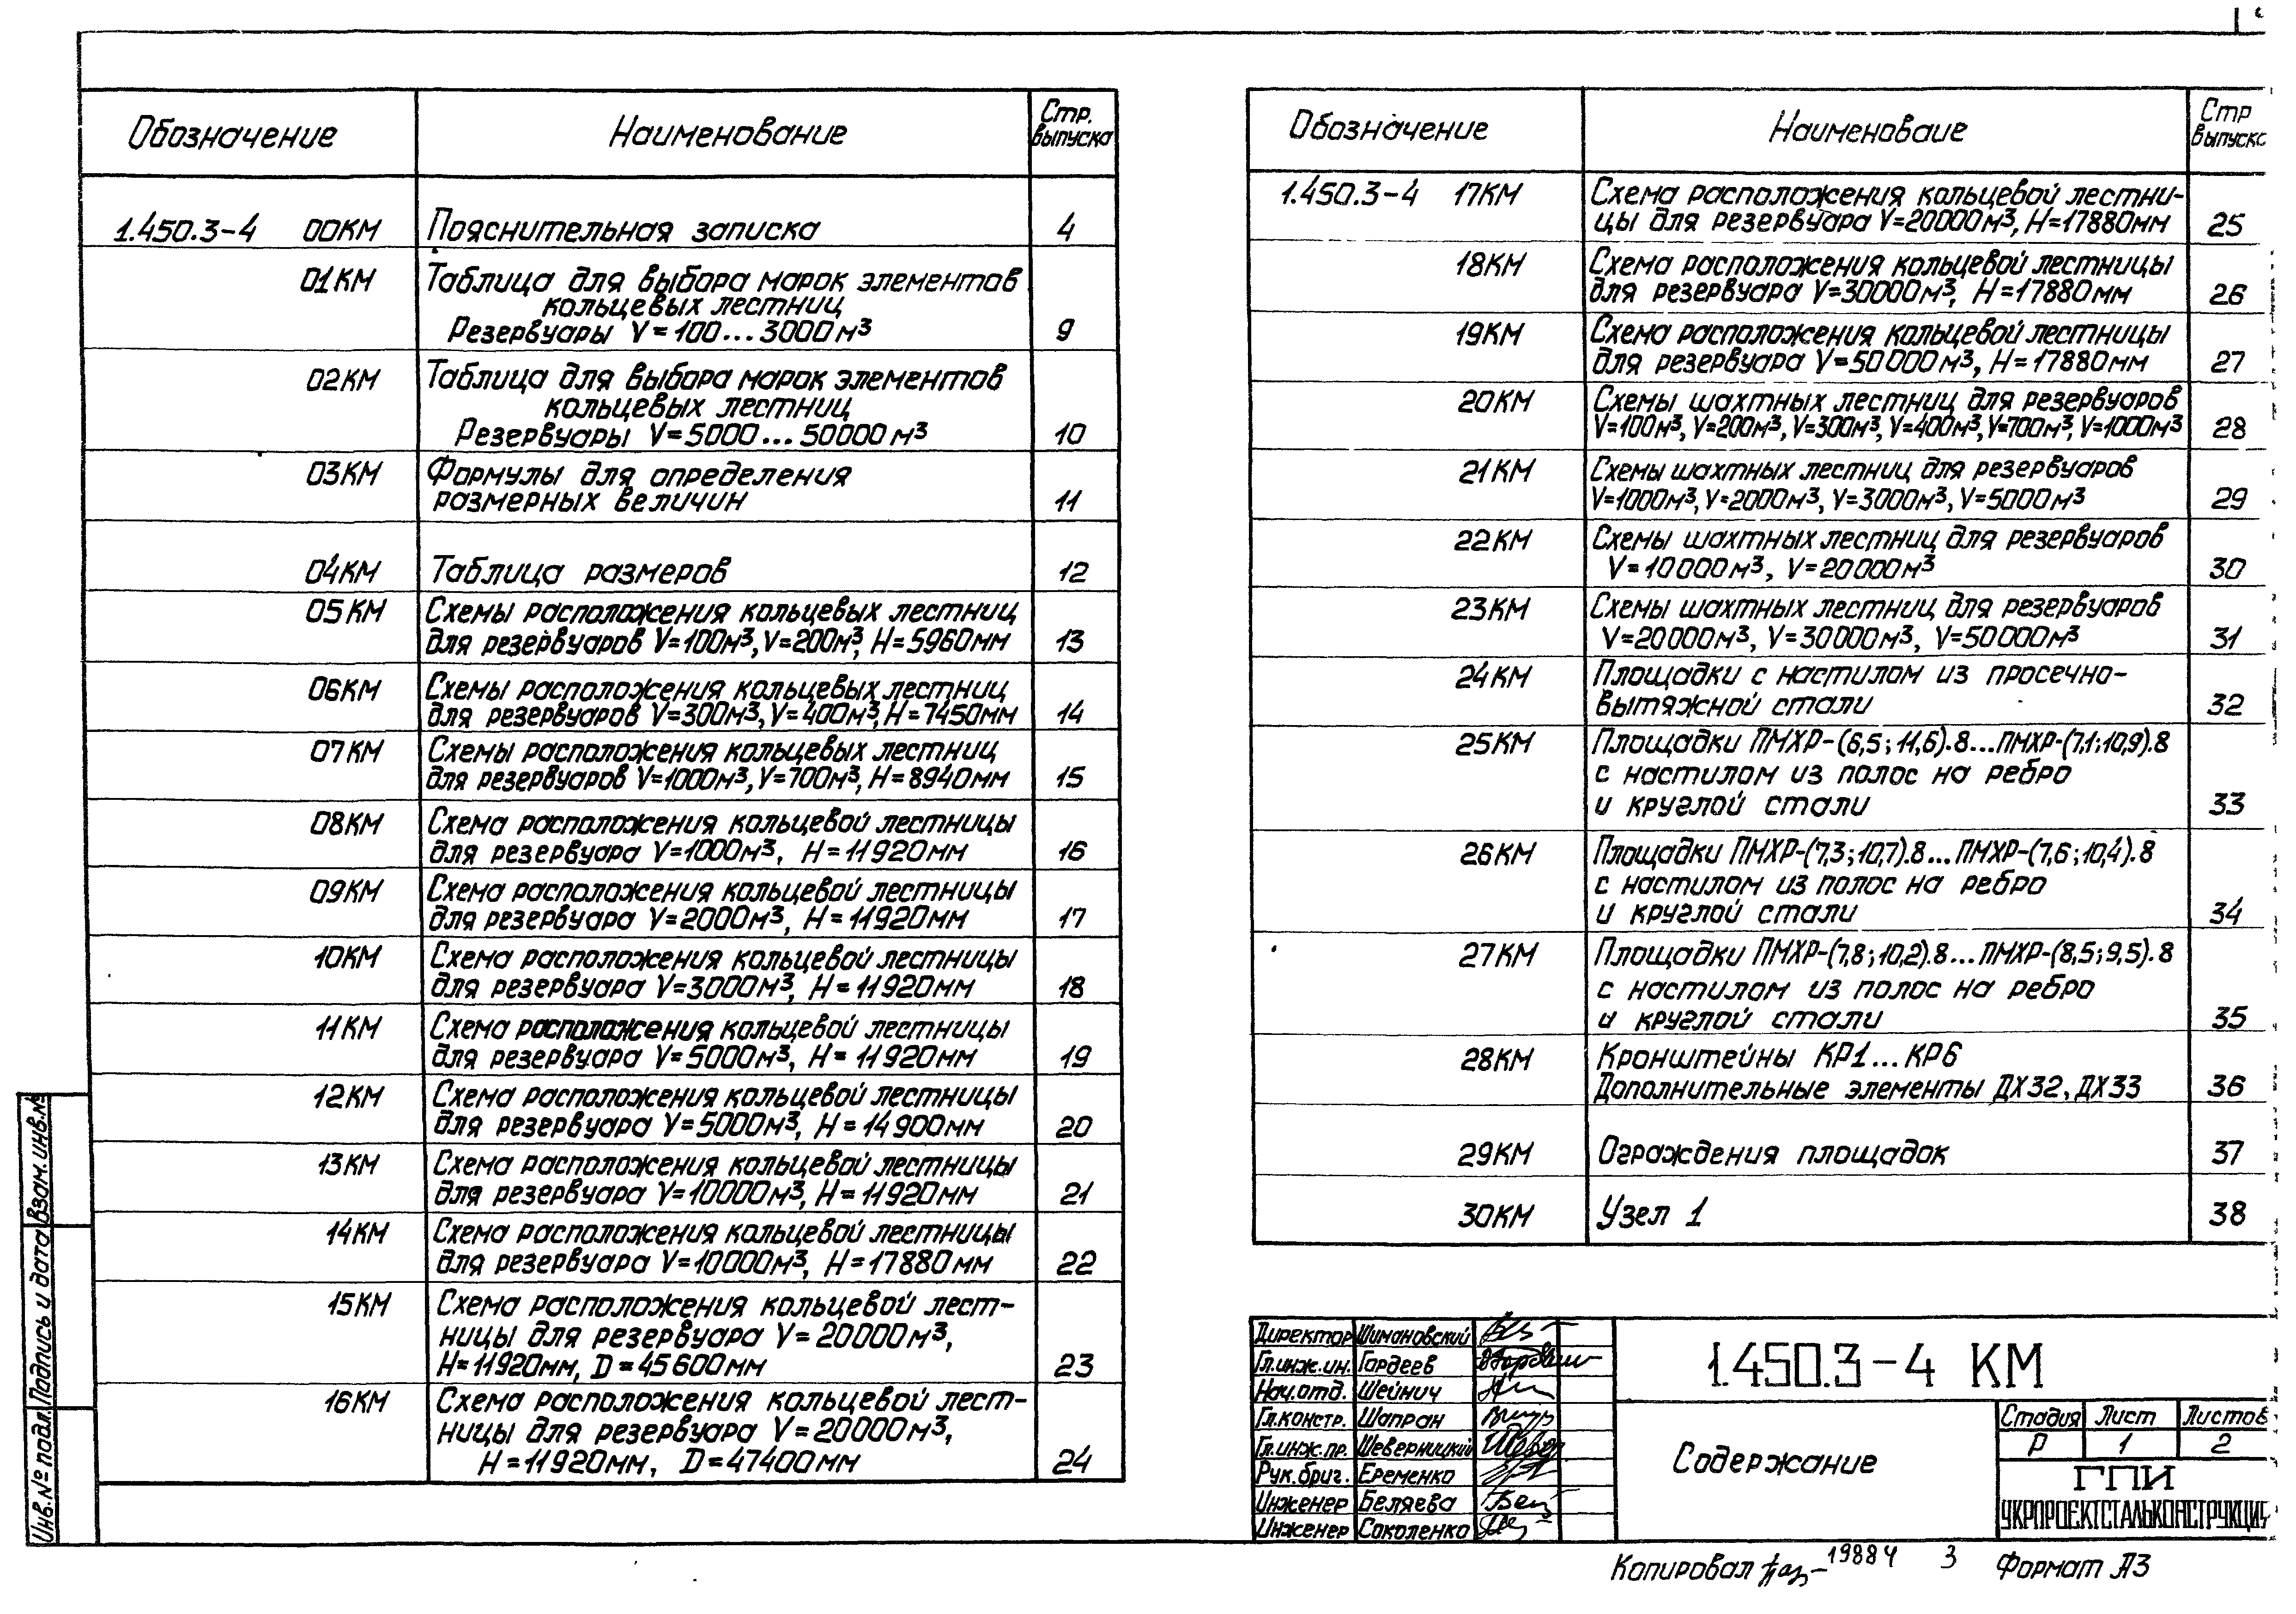 Обозначение Наименование Стр. выпуска
1.450.3-4 00КМ Пояснительная записка 4
01КМ Таблица для выбора марок элементов
кольцевых лестниц
Резервуары V=100...3000м³ 9
02КМ Таблица для выбора марок элементов
кольцевых лестниц
Резервуары V=5000...50000м³ 10
03КМ Формулы для определения
размерных величин 11
04КМ Таблица размеров 12
05КМ Схемы расположения кольцевых лестниц
для резервуаров V=100м³, V=200м³, H=5960мм 13
06КМ Схемы расположения кольцевых лестниц
для резервуаров V=300м³, V=400м³, H=7450мм 14
07КМ Схемы расположения кольцевых лестниц
для резервуаров V=1000м³, V=700м³, H=8940мм 15
08КМ Схема расположения кольцевой лестницы
для резервуара V=1000м³, H=11920мм 16
09КМ Схема расположения кольцевой лестницы
для резервуара V=2000м³, H=11920мм 17
10КМ Схема расположения кольцевой лестницы
для резервуара V=3000м³, H=11920мм 18
11КМ Схема расположения кольцевой лестницы
для резервуара V=5000м³, H=11920мм 19
12КМ Схема расположения кольцевой лестницы
для резервуара V=5000м³, H=14900мм 20
13КМ Схема расположения кольцевой лестницы
для резервуара V=10000м³, H=11920мм 21
14КМ Схема расположения кольцевой лестницы
для резервуара V=10000м³, H=17880мм 22
15КМ Схема расположения кольцевой лест-
ницы для резервуара V=20000м³,
H=11920мм, D=45600мм 23
16КМ Схема расположения кольцевой лест-
ницы для резервуара V=20000м³,
H=11920мм, D=47400мм 24
Обозначение Наименоваие Стр выпуска
1.450.3-4 17КМ Схема расположения кольцевой лестни-
цы для резервуара V=20000м³, H=17880мм 25
18КМ Схема расположения кольцевой лестницы
для резервуара V=30000м³, H=17880мм 26
19КМ Схема расположения кольцевой лестницы
для резервуара V=50000м³, H=17880мм 27
20КМ Схемы шахтных лестниц для резервуаров
V=100м³, V=200м³, V=300м³, V=400м³, V=700м³, V=1000м³ 28
21КМ Схемы шахтных лестниц для резервуаров
V=1000м³, V=2000м³, V=3000м³, V=5000м³ 29
22КМ Схемы шахтных лестниц для резервуаров
V=10000м³, V=20000м³ 30
23КМ Схемы шахтных лестниц для резервуаров
V=20000м³, V=30000м³, V=50000м³ 31
24КМ Площадки с настилом из просечно-
вытяжной стали 32
25КМ Площадки ПМХР-(6,5; 11,6).8...ПМХР-(7,1; 10,9).8
с настилом из полос на ребро
и круглой стали 33
26КМ Площадки ПМХР-(7,3; 10,7).8...ПМХР-(7,6; 10,4).8
с настилом из полос на ребро
и круглой стали 34
27КМ Площадки ПМХР-(7,8; 10,2).8...ПМХР-(8,5; 9,5).8
с настилом из полос на ребро
и круглой стали 35
28КМ Кронштейны КР1...КР6
Дополнительные элементы ДХ32, ДХ33 36
29КМ Ограждения площадок 37
30КМ Узел 1 38
Директор Шимановский
Гл.инж.ин. Гордеев
Нач.отд. Шейнич
Гл.констр. Шапран
Гл.инж.пр. Шеверницкий
Рук.бриг. Еременко
Инженер Беляева
Инженер Соколенко
1.450.3-4 КМ
Содержание
Стадия Лист Листов
Р 1 2
ГПИ
УКРПРОЕКТСТАЛЬКОНСТРУКЦИЯ
Инв.№ подл. Подпись и дата Взам.инв.№
Копировал 19884 3 Формат А3